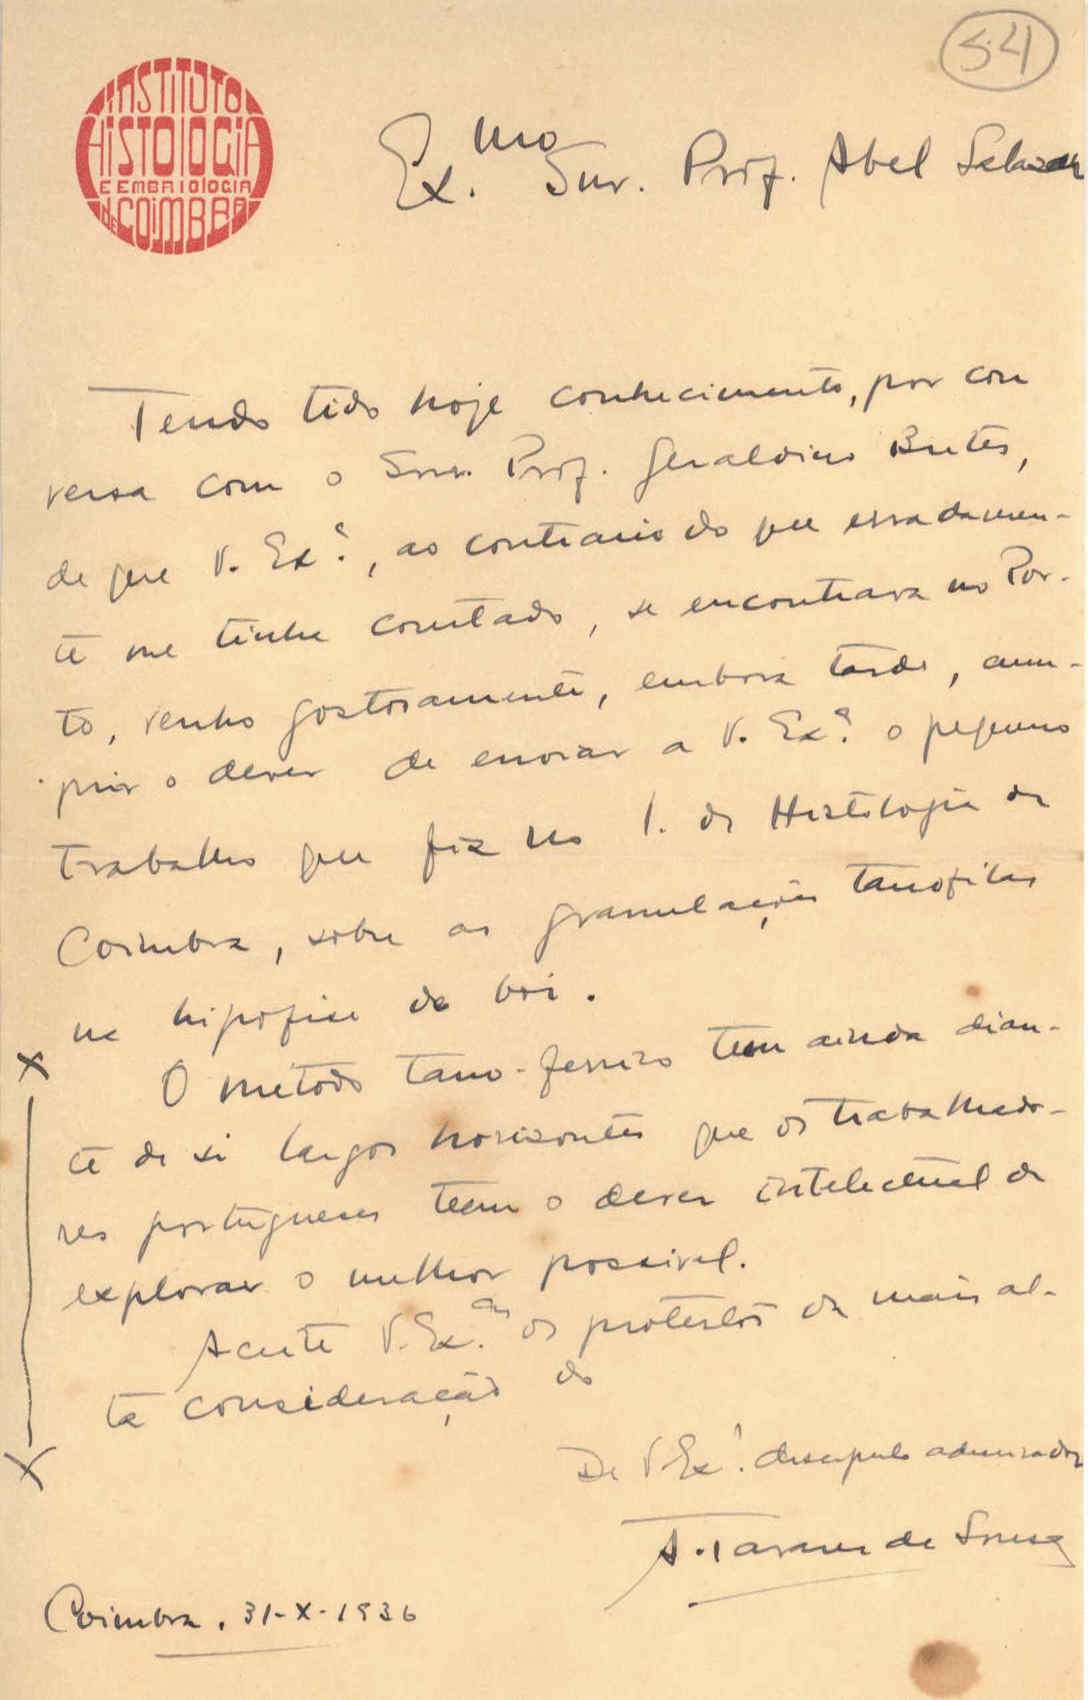 54
INSTITUTO
HISTOLOGIA
E EMBRIOLOGIA
DE COIMBRA
Ex.mo Snr. Prof. Abel Salazar
Tendo tido hoje conhecimento, por con
versa com o Snr. Prof. Geraldino Brites,
de que V. Ex.ª, ao contrario do que erradamen-
te me tinha constado, se encontrava no Por-
to, venho gostosamente, embora tarde, cum-
prir o dever de enviar a V. Ex.ª o pequeno
trabalho que fiz no I. de Histologia de
Coimbra, sobre as granulações tanofilas
na hipofise do boi.
O metodo tano-ferrico tem ainda dian-
te de si largos horizontes que os trabalhado-
res portugueses teem o dever intelectual de
explorar o melhor possivel.
Aceite V. Ex.ª os protestos da mais al-
ta consideração do
De V. Ex.ª discipulo admirador
A. Tavares de Sousa
Coimbra, 31-X-1936